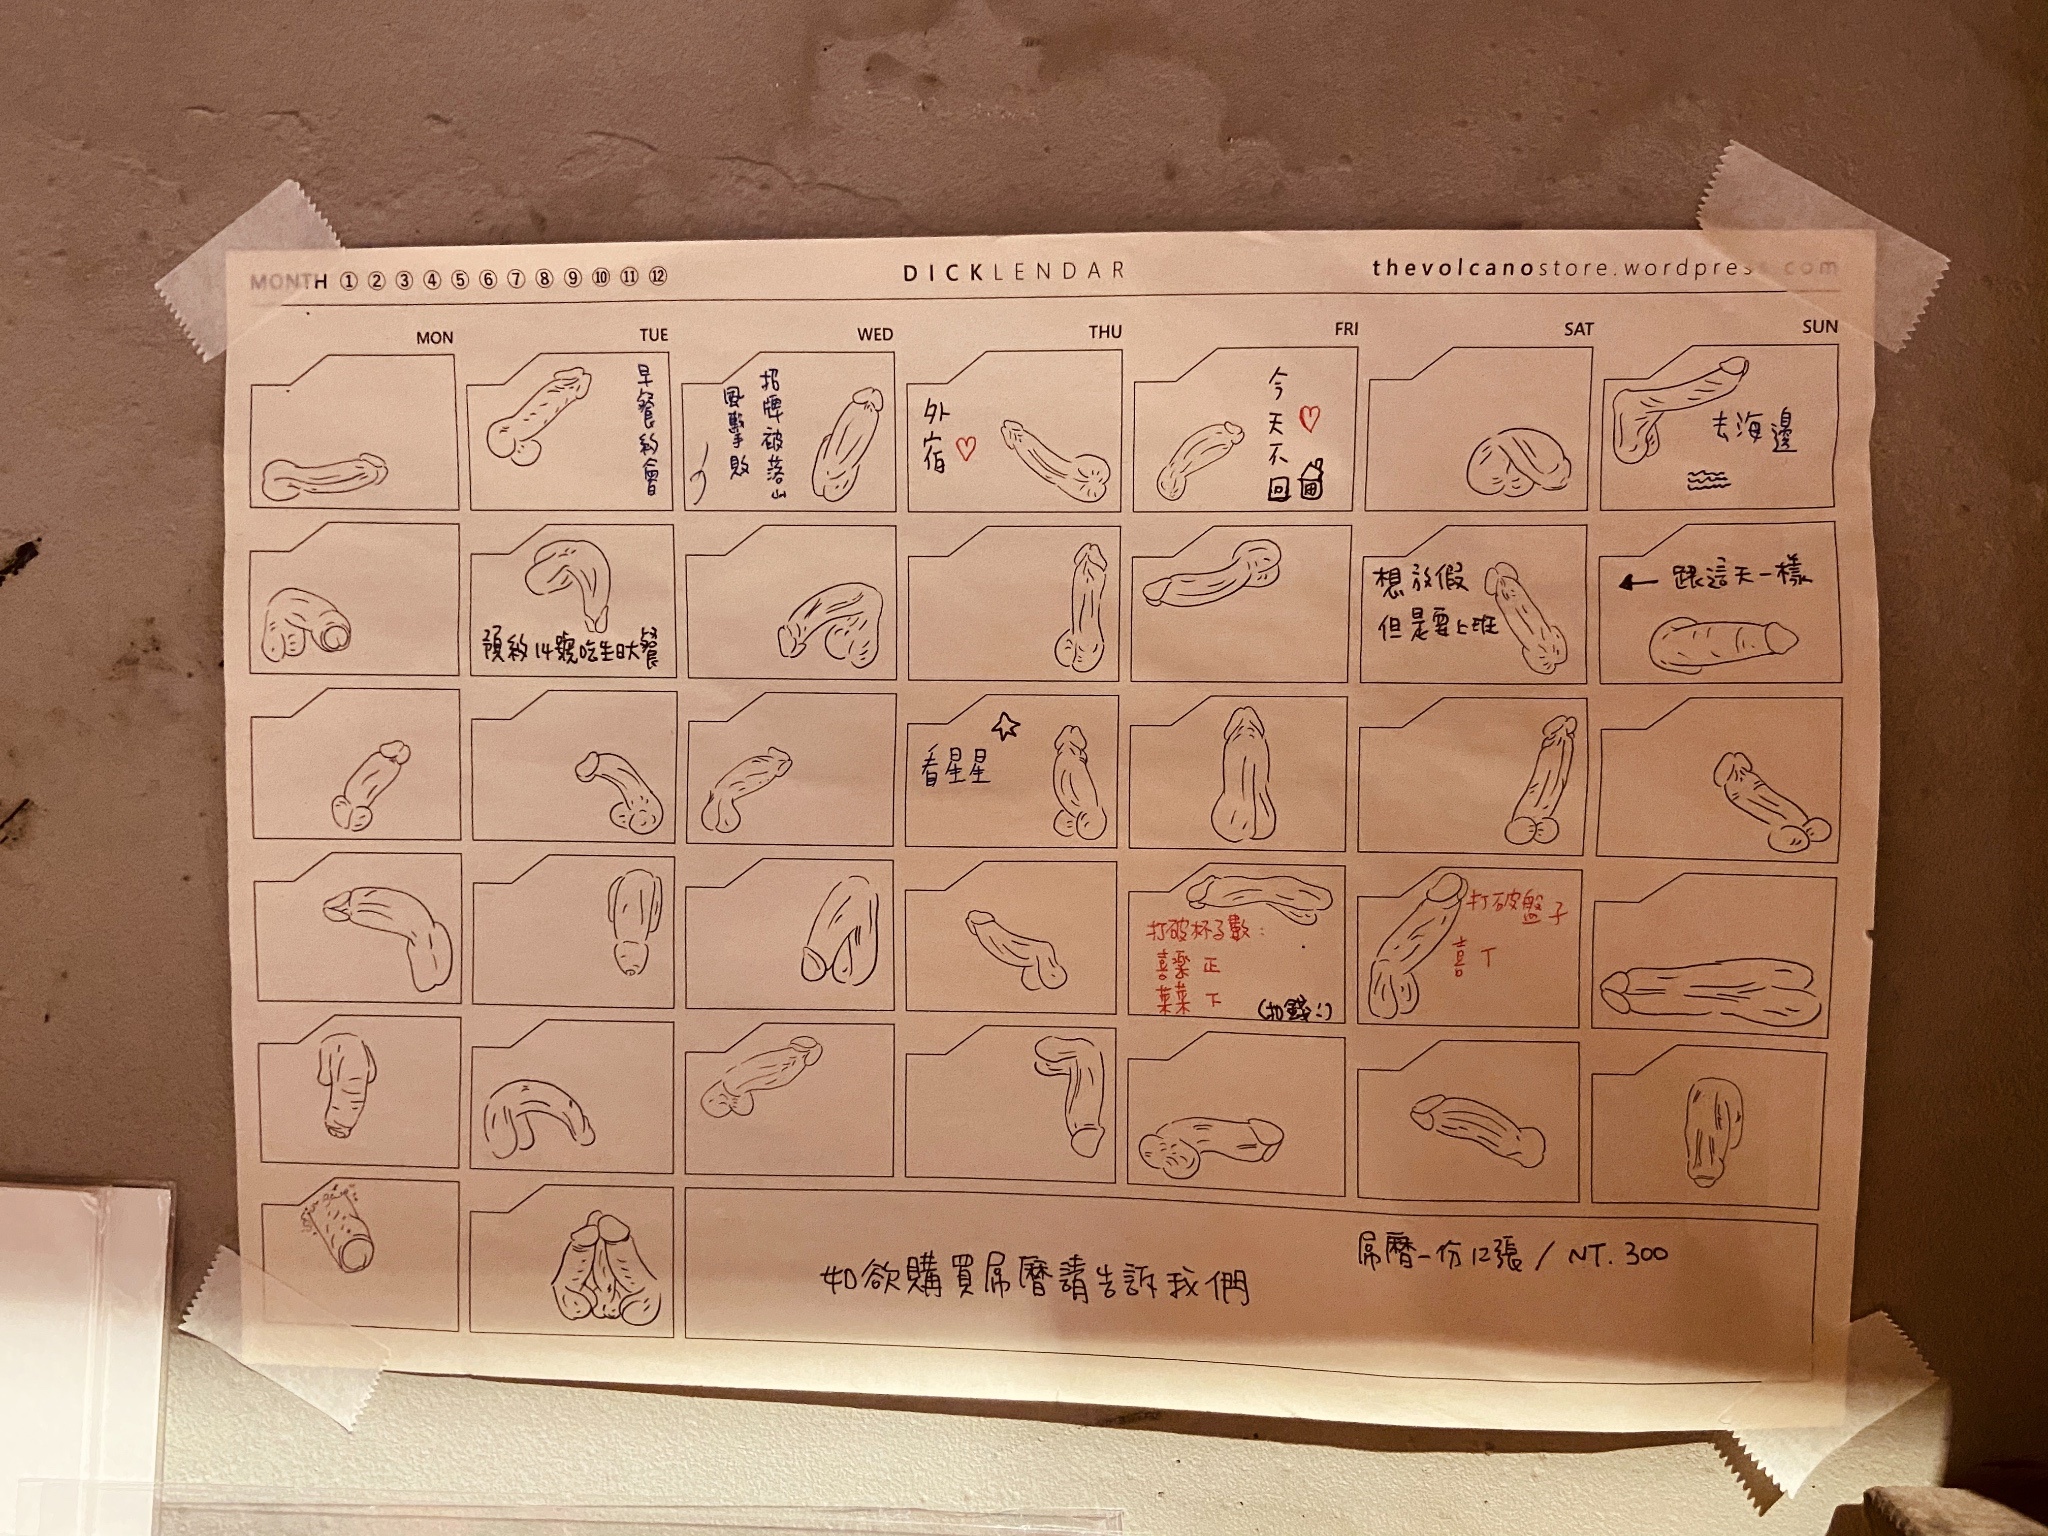 MONTH ① ② ③ ④ ⑤ ⑥ ⑦ ⑧ ⑨ ⑩ ⑪ ⑫
DICKLENDAR
thevolcanostore.wordpress.com
MON TUE WED THU FRI SAT SUN
早餐約會
招牌被落山
風擊敗
外宿
今天不回
去海邊
預約14號吃生日大餐
想放假
但是要上班
← 跟這天一樣
看星星
打破杯子數:
喜樂 正
菓菓 下
(扣錢:)
打破盤子
喜 丅
如欲購買屌曆請告訴我們
屌曆一份12張 / NT. 300